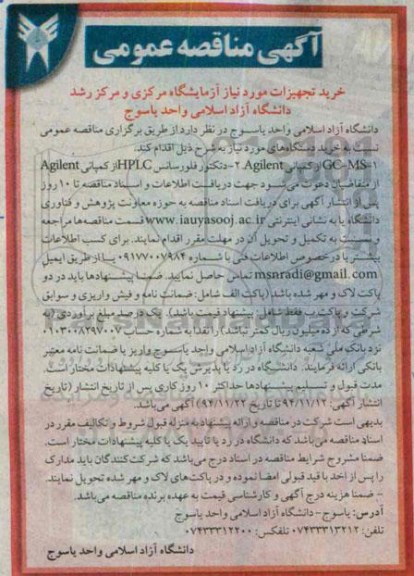 آگهی مناقصه عمومی
خرید تجهیزات مورد نیاز آزمایشگاه مرکزی و مرکز رشد
دانشگاه آزاد اسلامی واحد یاسوج
دانشگاه آزاد اسلامی واحد یاسوج در نظر دارد از طریق برگزاری مناقصه عمومی
نسبت به خرید دستگاههای مورد نیاز به شرح ذیل اقدام کند.
۱-GC-MS از کمپانی Agilent ۲- دتکتور فلورسانس HPLC از کمپانی Agilent
از متقاضیان دعوت می شود جهت دریافت اطلاعات و اسناد مناقصه تا ۱۰ روز
پس از انتشار آگهی برای دریافت اسناد مناقصه به حوزه معاونت پژوهش و فناوری
دانشگاه یا به نشانی اینترنتی www.iauyasooj.ac.ir قسمت مناقصه ها مراجعه
و نسبت به تکمیل و تحویل آن در مهلت مقرر اقدام نمایند. برای کسب اطلاعات
بیشتر یا در خصوص اطلاعات فنی با شماره ۰۹۱۷۷۰۰۷۹۸۴ یا از طریق ایمیل
msnradi@gmail.com تماس حاصل نمایید. ضمنا پیشنهادها باید در دو
پاکت لاک و مهر شده باشد (پاکت الف شامل: ضمانت نامه و فیش واریزی و سوابق
شرکت و پاکت ب فقط شامل: پیشنهاد قیمت باشد). یک درصد مبلغ برآوردی (به
شرطی که از ده میلیون ریال کمتر نباشد) را نقدا به شماره حساب ۰۱۰۳۰۰۸۲۹۷۰۰۷
نزد بانک ملی شعبه دانشگاه آزاد اسلامی واحد یاسوج واریز یا ضمانت نامه معتبر
بانکی ارائه فرمایند. دانشگاه در رد یا پذیرش یک یا کلیه پیشنهادات مختار است.
مدت قبول و تسلیم پیشنهادها حداکثر ۱۰ روز کاری پس از تاریخ انتشار (تاریخ
انتشار آگهی: ۹۴/۱۱/۱۲ تا تاریخ ۹۴/۱۱/۲۲) آگهی می باشد.
بدیهی است شرکت در مناقصه و ارائه پیشنهاد به منزله قبول شروط و تکالیف مقرر در
اسناد مناقصه می باشد که دانشگاه در رد یا تایید یک یا کلیه پیشنهادات مختار است.
ضمنا مشروح شرایط مناقصه در اسناد درج می باشد که شرکت کنندگان باید مدارک
را پس از اخذ با قید قبولی امضا نموده و در پاکت های لاک و مهر شده تحویل نمایند.
- ضمنا هزینه درج آگهی و کارشناسی قیمت به عهده برنده مناقصه می باشد.
آدرس: یاسوج - دانشگاه آزاد اسلامی واحد یاسوج
تلفن: ۰۷۴۳۳۳۱۳۲۱۲ تلفکس: ۰۷۴۳۳۳۱۲۲۰۰
دانشگاه آزاد اسلامی واحد یاسوج